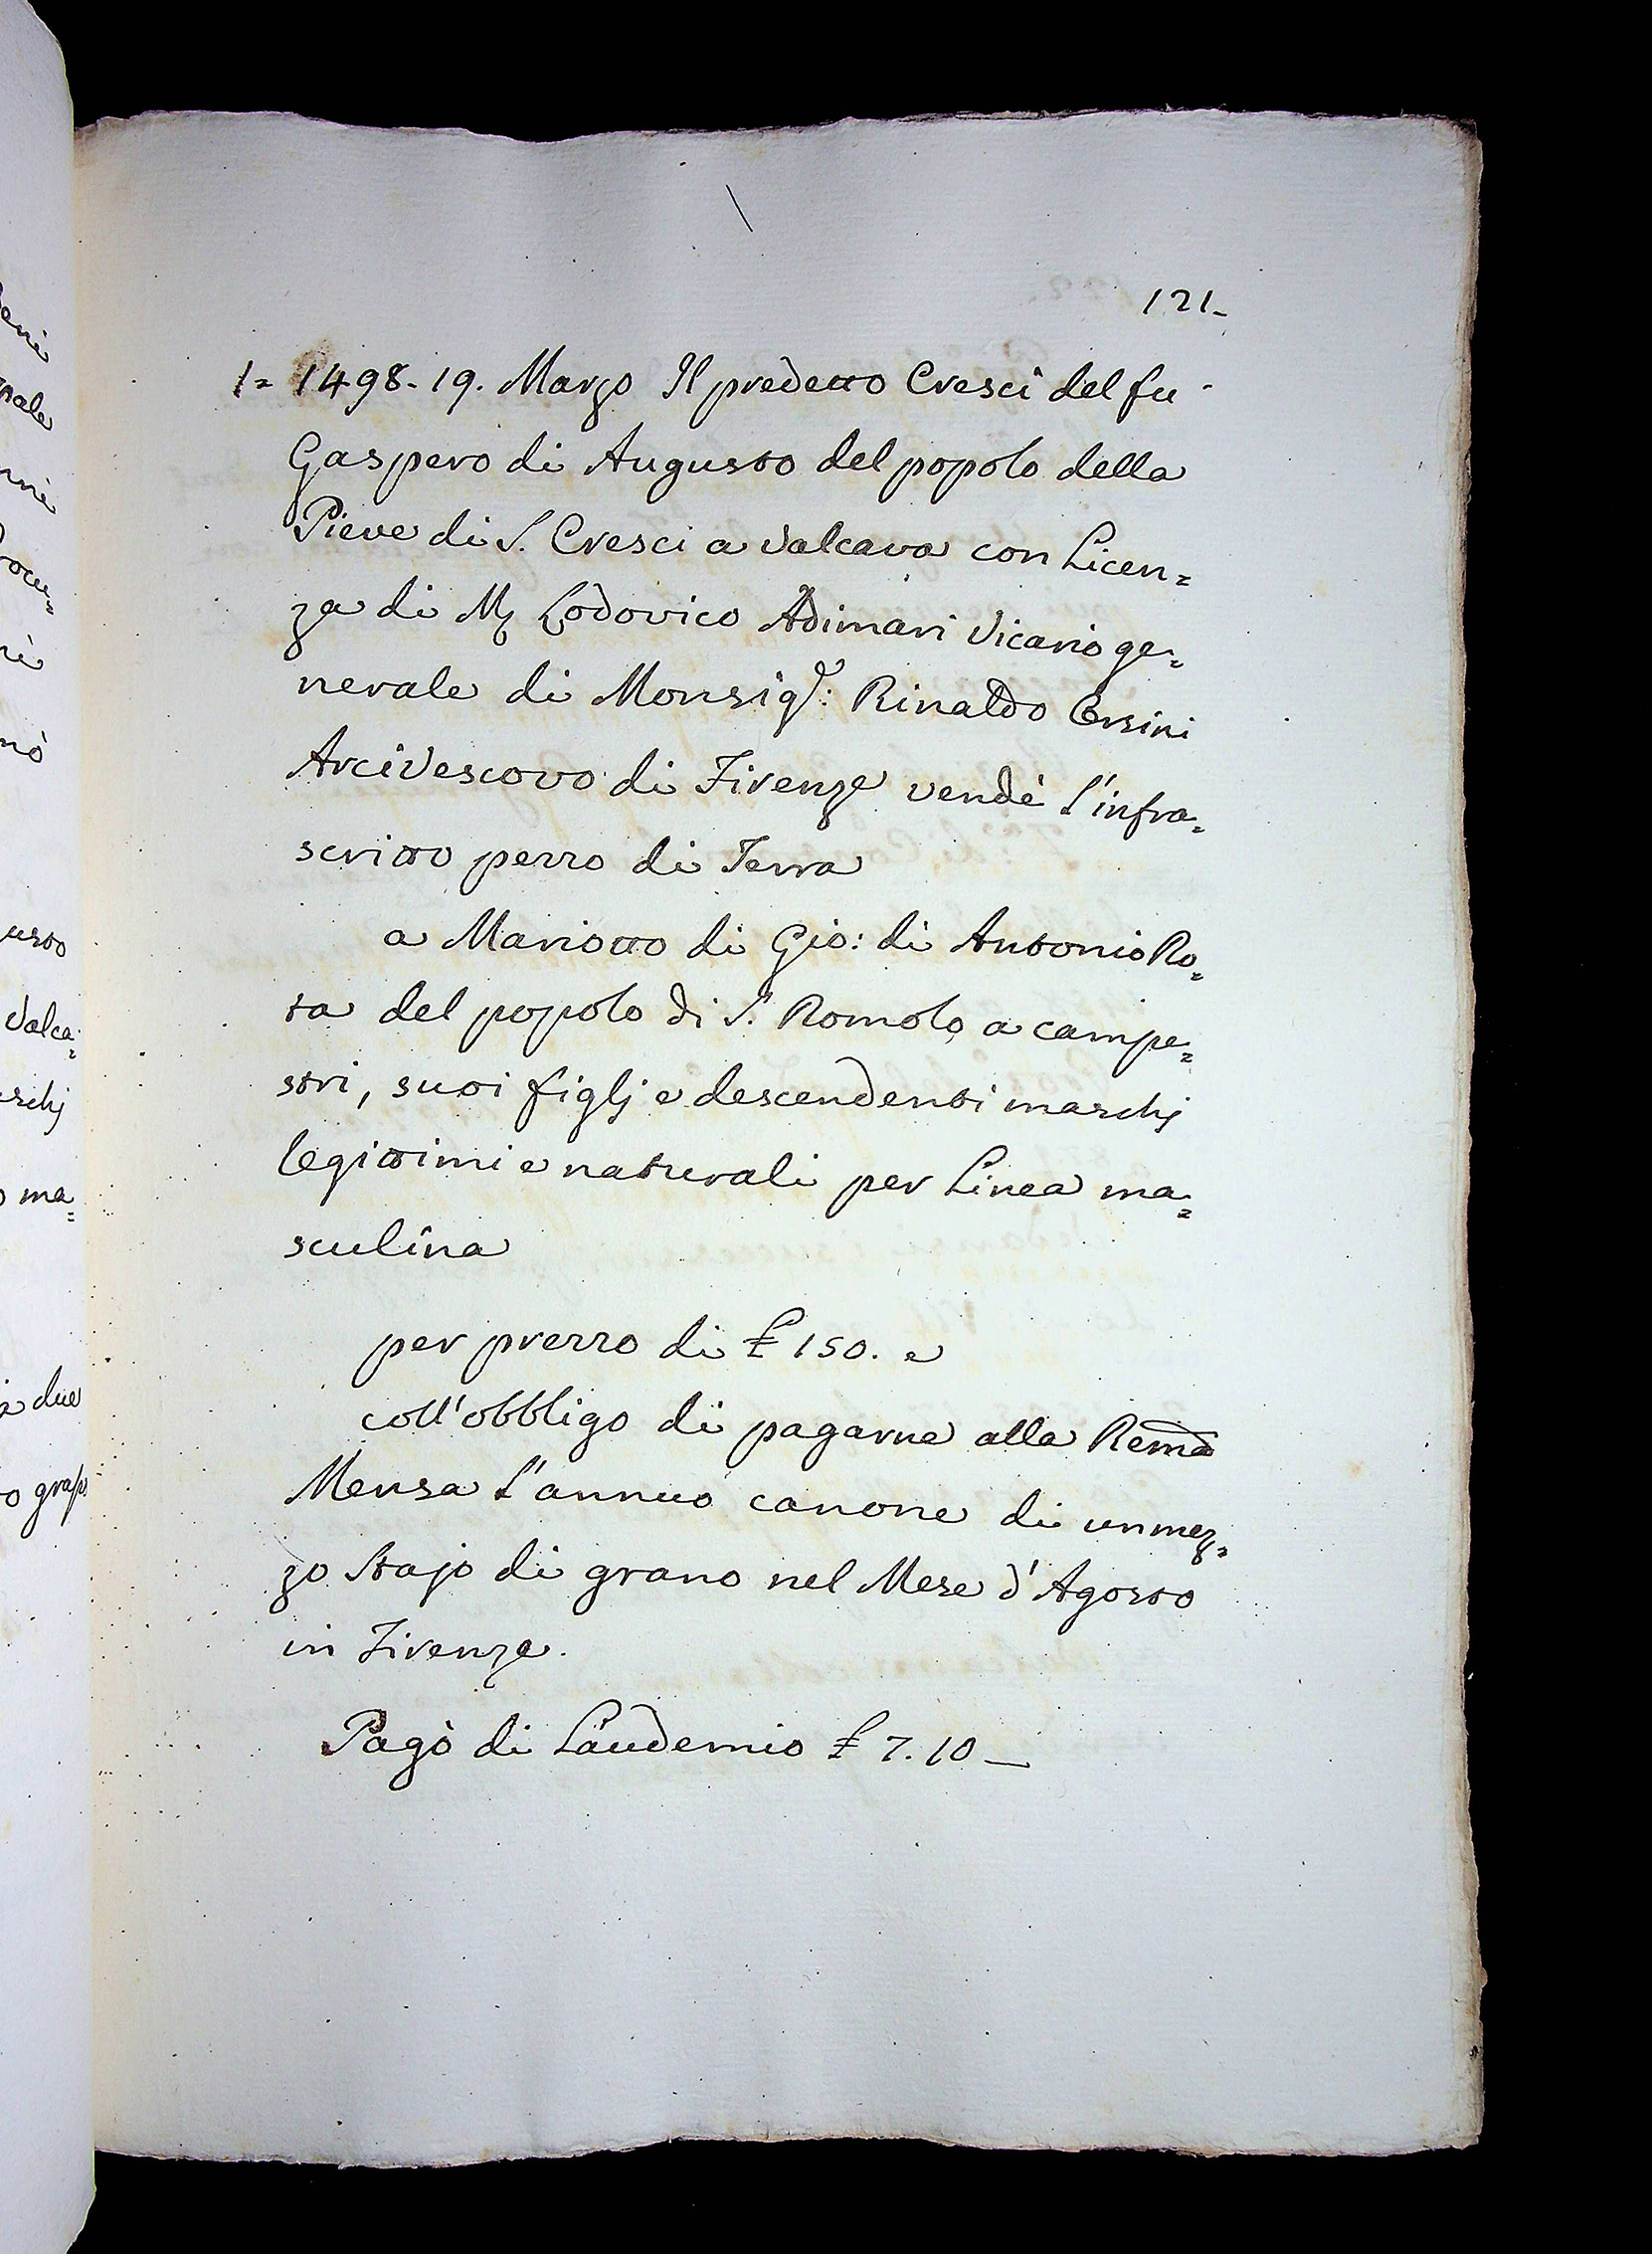 121-
1= 1498. 19. Marzo Il predetto Cresci del fu
Gaspero di Augusto del popolo della
Pieve di S. Cresci a Valcava con Licen=
za di M. Lodovico Adimari Vicario ge=
nerale di Monsig.r: Rinaldo Orsini
Arcivescovo di Firenze vendè l'infra=
scritto pezzo di Terra
a Mariotto di Gio: di Antonio Ro=
ta del popolo di S. Romolo a campe=
stri, suoi figlj e descendenti maschj
legittimi e naturali per Linea ma=
sculina
per prezzo di £ 150. e
coll'obbligo di pagarne alla Rema
Mensa l'annuo canone di un mez=
zo Stajo di grano nel Mese d'Agosto
in Firenze.
Pagò di Laudemio £ 7. 10 —